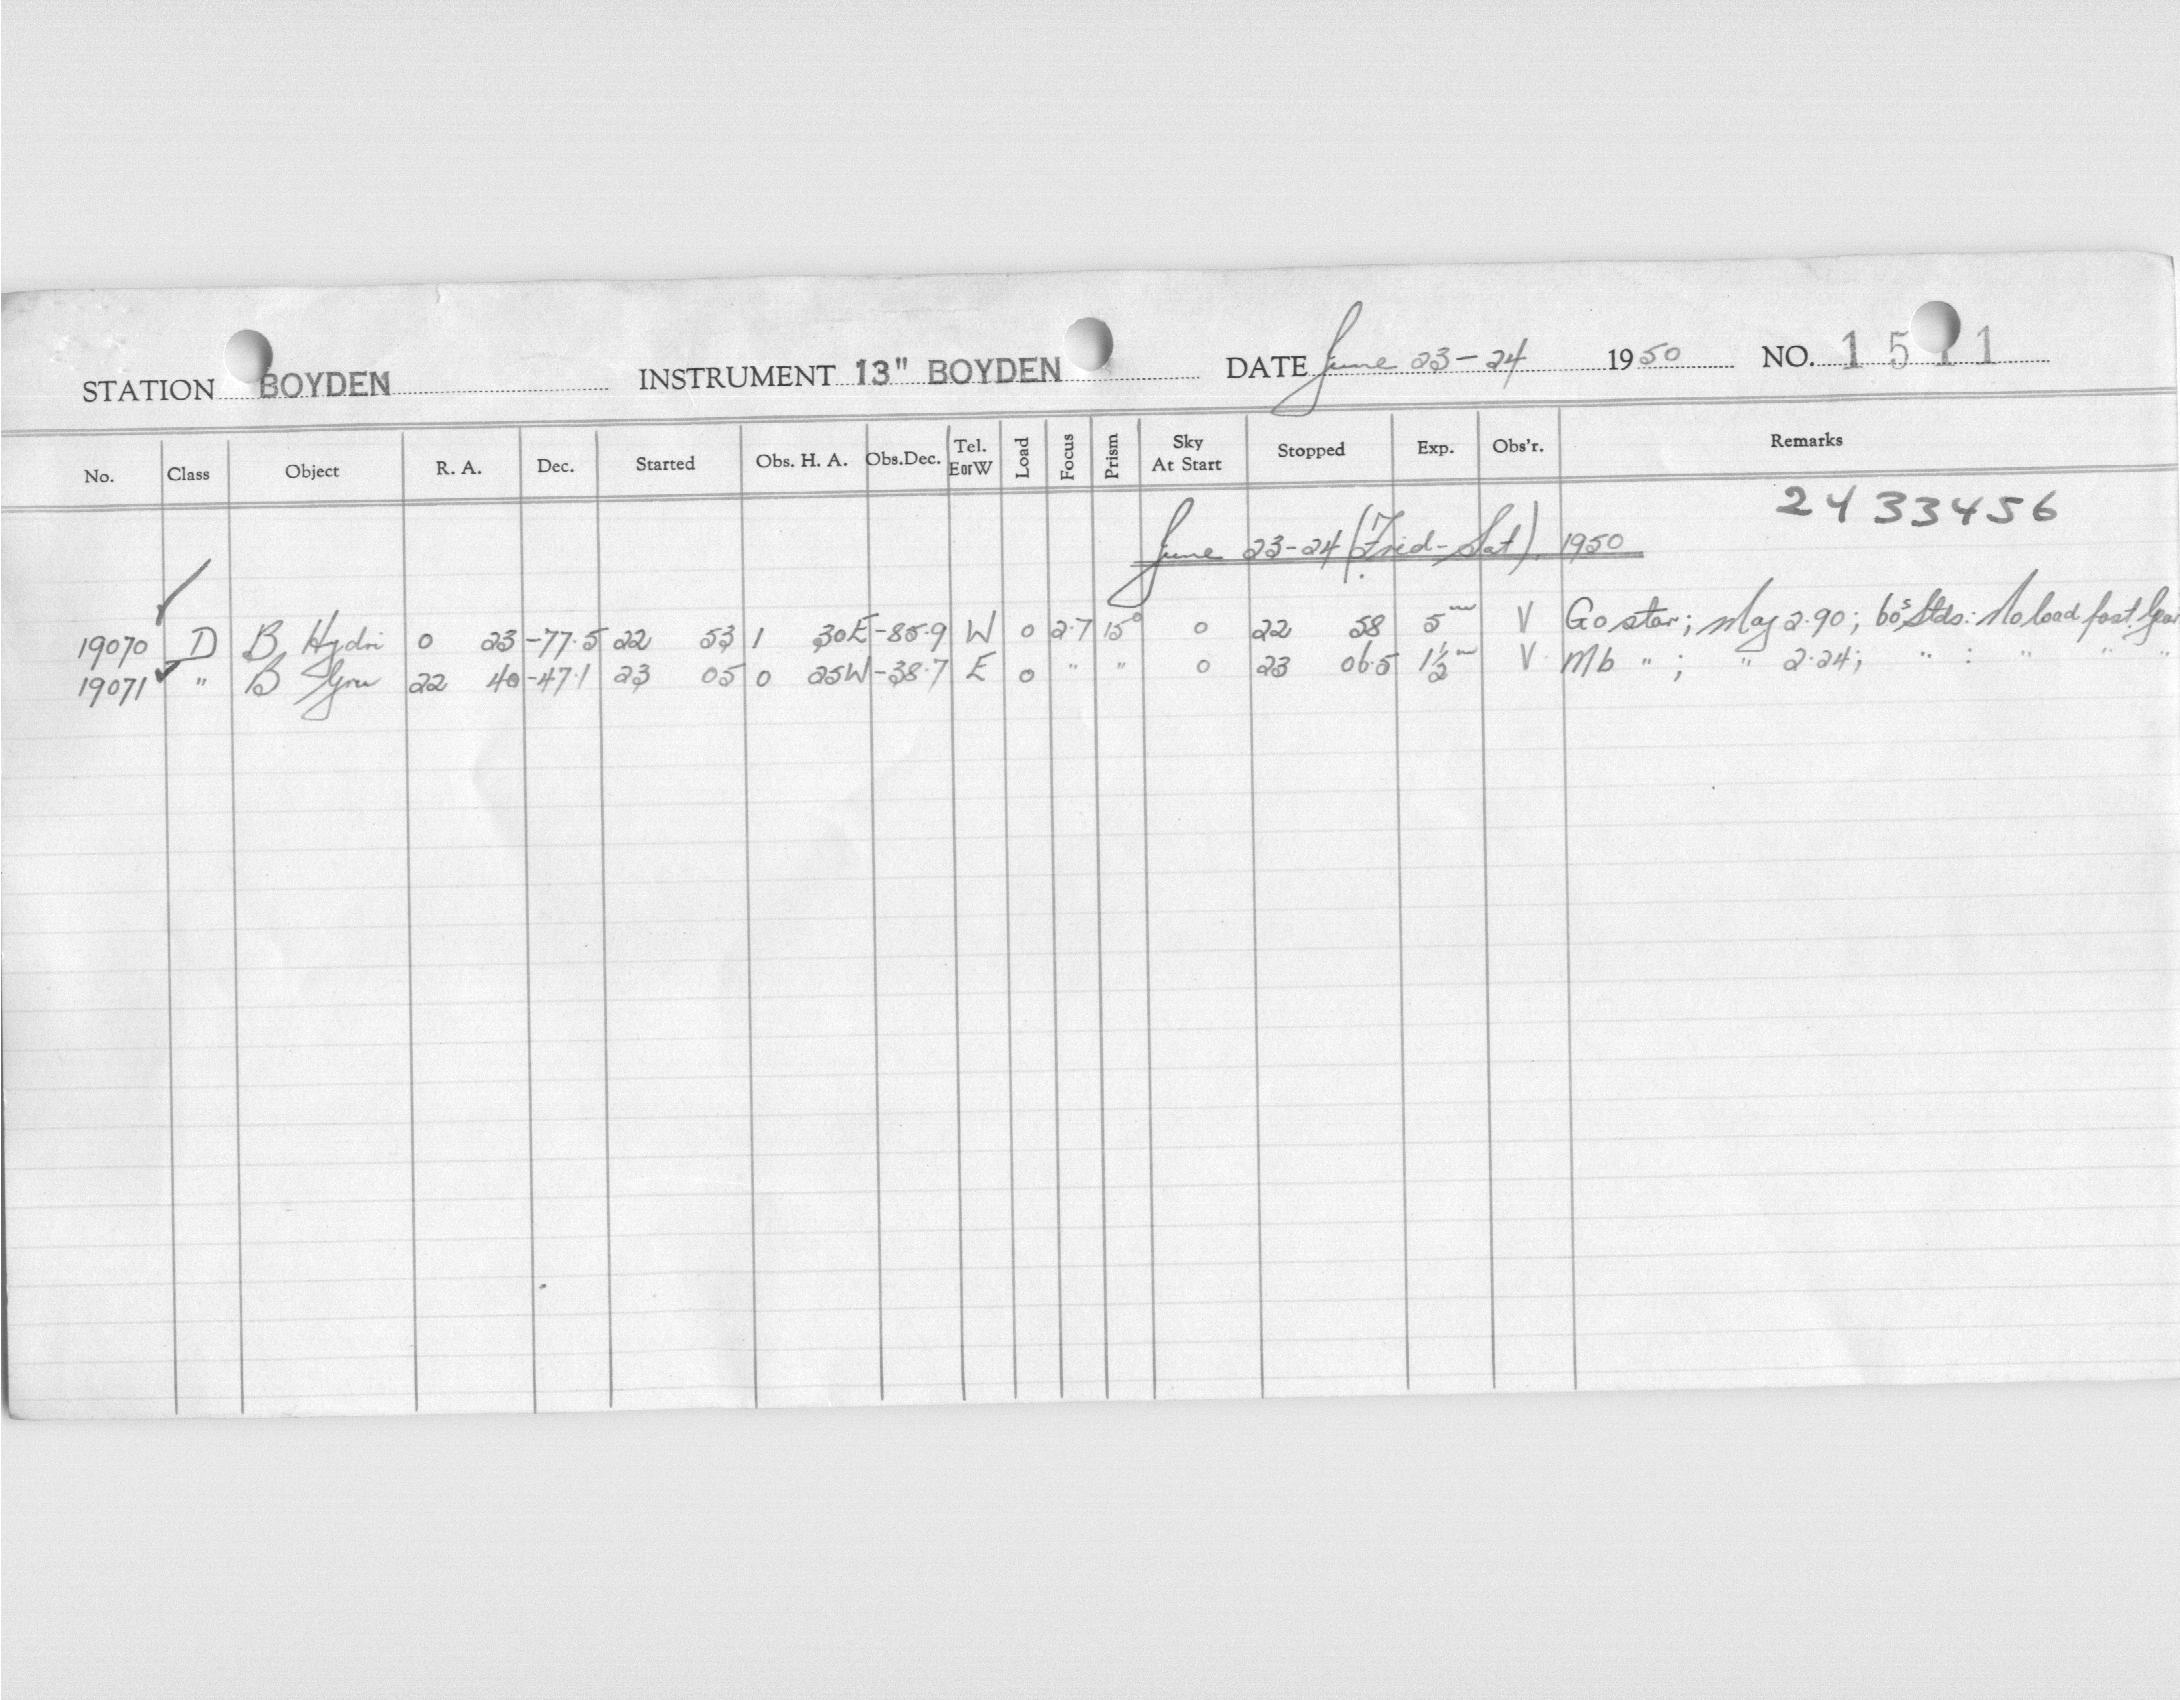 STATION BOYDEN INSTRUMENT 13" BOYDEN DATE June 23-24 1950 NO. 1511
No. Class Object R. A. Dec. Started Obs. H. A. Obs.Dec. Tel. E or W Load Focus Prism Sky At Start Stopped Exp. Obs'r. Remarks
2433456
June 23-24 (Frid-Sat). 1950
19070 D B Hydri 0 23 -77.5 22 53 1 30E -85.9 W 0 2.7 15° 0 22 58 5m V Go star; Mag 2.90; 60s Stds: No load fast
19071 " B Gru 22 40 -47.1 23 05 0 25W -38.7 E 0 " " 0 23 06.5 1½m V Mb "; " 2.24; " : " " "